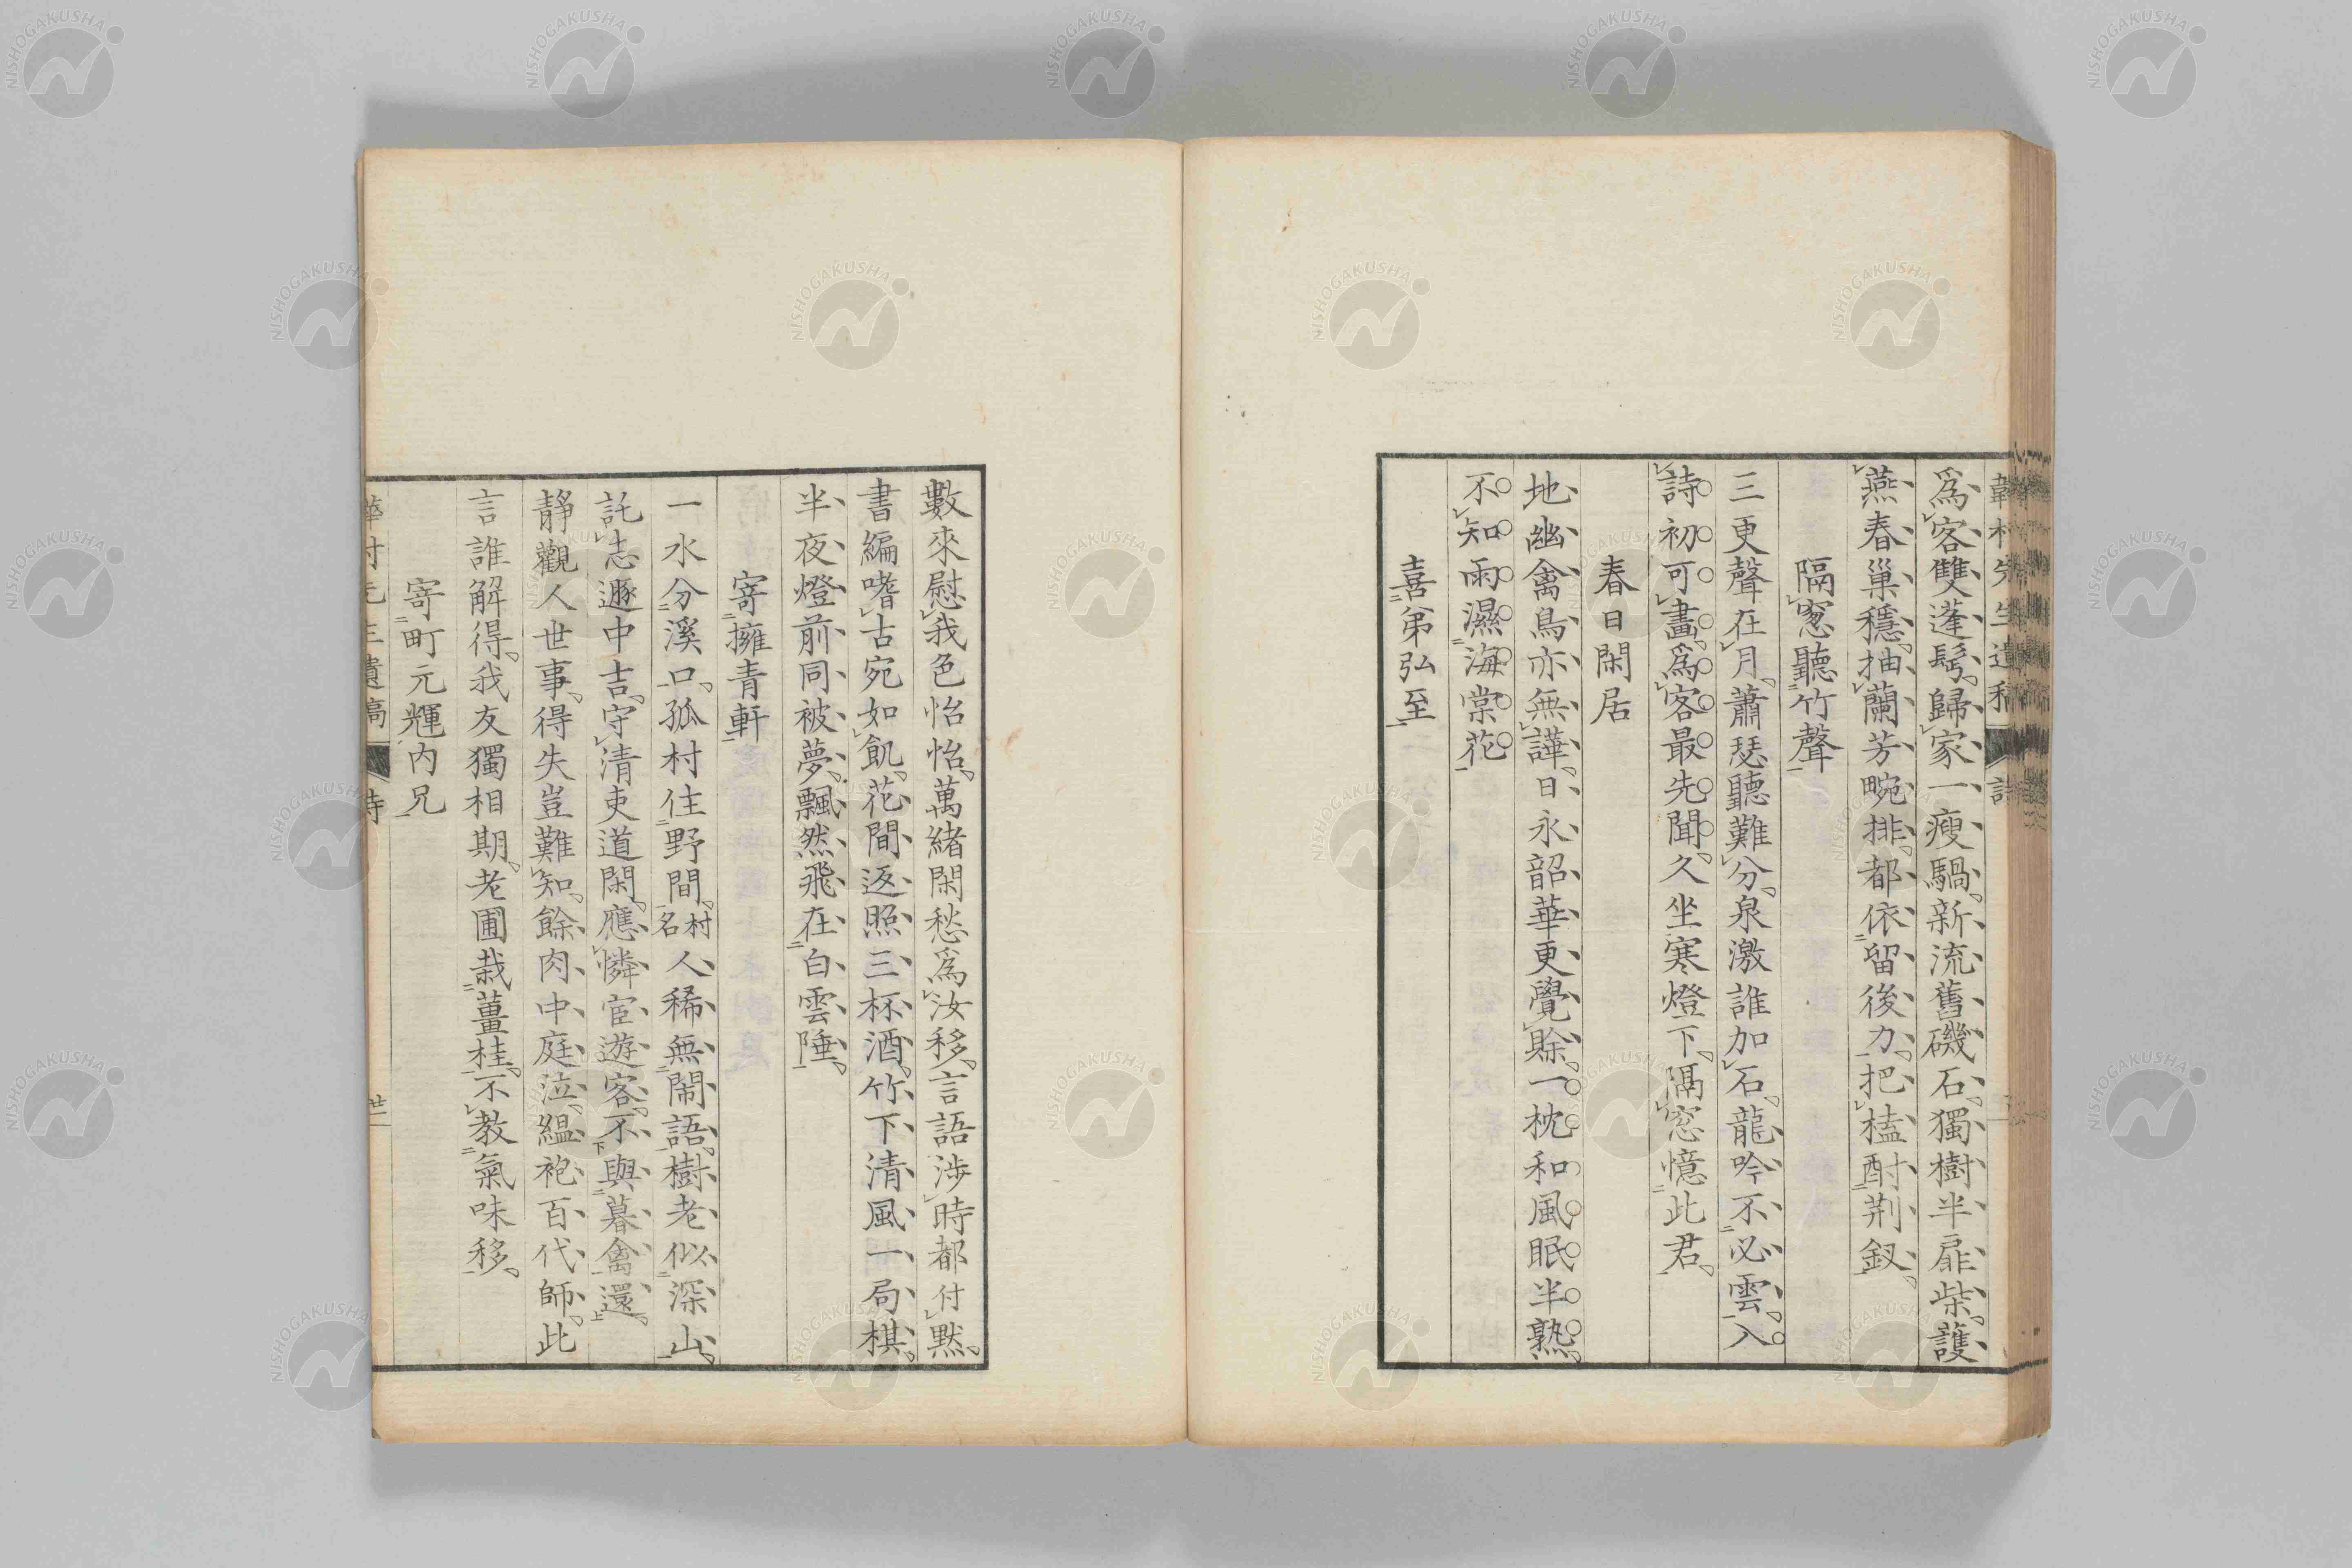 爲客雙蓬鬂歸家一瘦騧新流舊磯石獨樹半扉柴護
燕春巢穩抽蘭芳畹排都依留後力把榼酎荆釵
隔窓聽竹聲
三更聲在月蕭瑟聽難分泉激誰加石龍吟不必雲入
詩初可畫爲客最先聞久坐寒燈下隔窓憶此君
春日閑居
地幽禽鳥亦無譁日永韶華更覺賒一枕和風眠半熟
不知雨濕海棠花
喜弟弘至
數來慰我色怡怡萬緒閑愁爲汝移言語渉時都付默
書編嗜古宛如飢花間返照三杯酒竹下清風一局棋
半夜燈前同被夢飄然飛在白雲陲
寄擁青軒
一水分溪口孤村住野間村名人稀無鬧語樹老似深山
託志遯中吉守清吏道閑應憐宦遊客不與暮禽還
靜觀人世事得失豈難知餘肉中庭泣縕袍百代師此
言誰解得我友獨相期老圃栽薑桂不教氣味移
寄町元輝內兄
村先生遺稿 詩 廿二
NISHOGAKUSHA